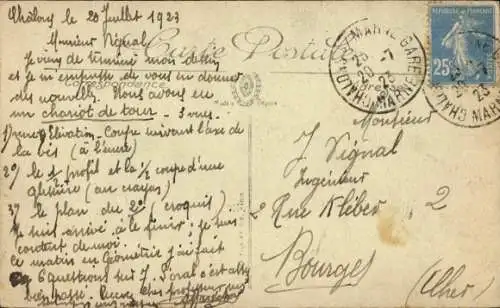 Châlons le 20 Juillet 1923
Monsieur Vignal
Je viens de terminer mon dessin
et je m'empresse de vous en donner
des nouvelles. Nous avons eu
un chariot de tour — 3 vues
Elévation — Coupe suivant l'axe de
la vis (à l'encre)
2°/ le profil et la 1/2 coupe d'une
glissière (au crayon)
3°/ le plan du 2° (croquis)
Je suis arrivé à le finir; je suis
content de moi.
ce matin en Géométrie j'ai fait
6 questions sur 7. L'oral c'est assez
bien passé.
Carte Postale
Correspondance
CHALONS-S-MARNE GARE
20 -7
23
MARNE
REPUBLIQUE FRANÇAISE
25
Monsieur
J. Vignal
Ingénieur
Rue Kléber 2
Bourges
(Cher)